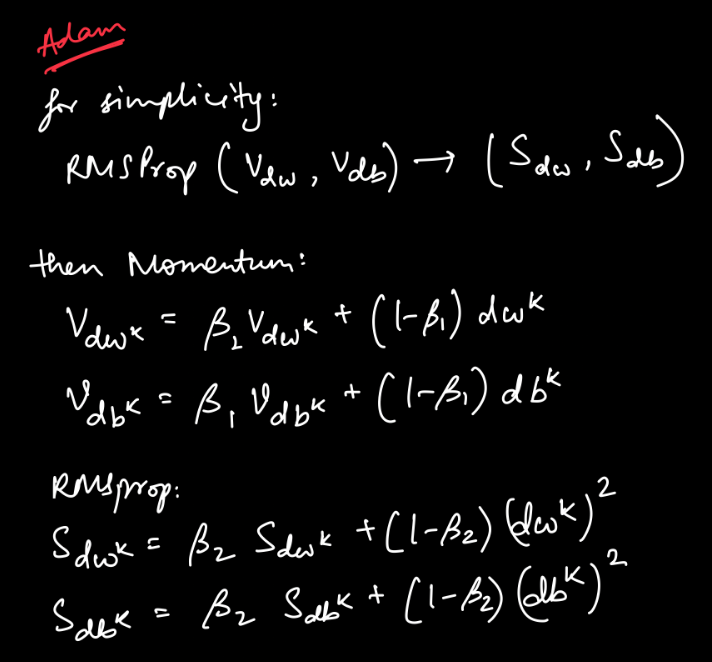 Adam
for simplicity:
RMSProp (V_dw, V_db) → (S_dw, S_db)
then Momentum:
V_dw^k = β_2 V_dw^k + (1-β_1) dw^k
V_db^k = β_1 V_db^k + (1-β_1) db^k
RMSprop:
S_dw^k = β_2 S_dw^k + (1-β_2) (dw^k)^2
S_db^k = β_2 S_db^k + (1-β_2) (db^k)^2